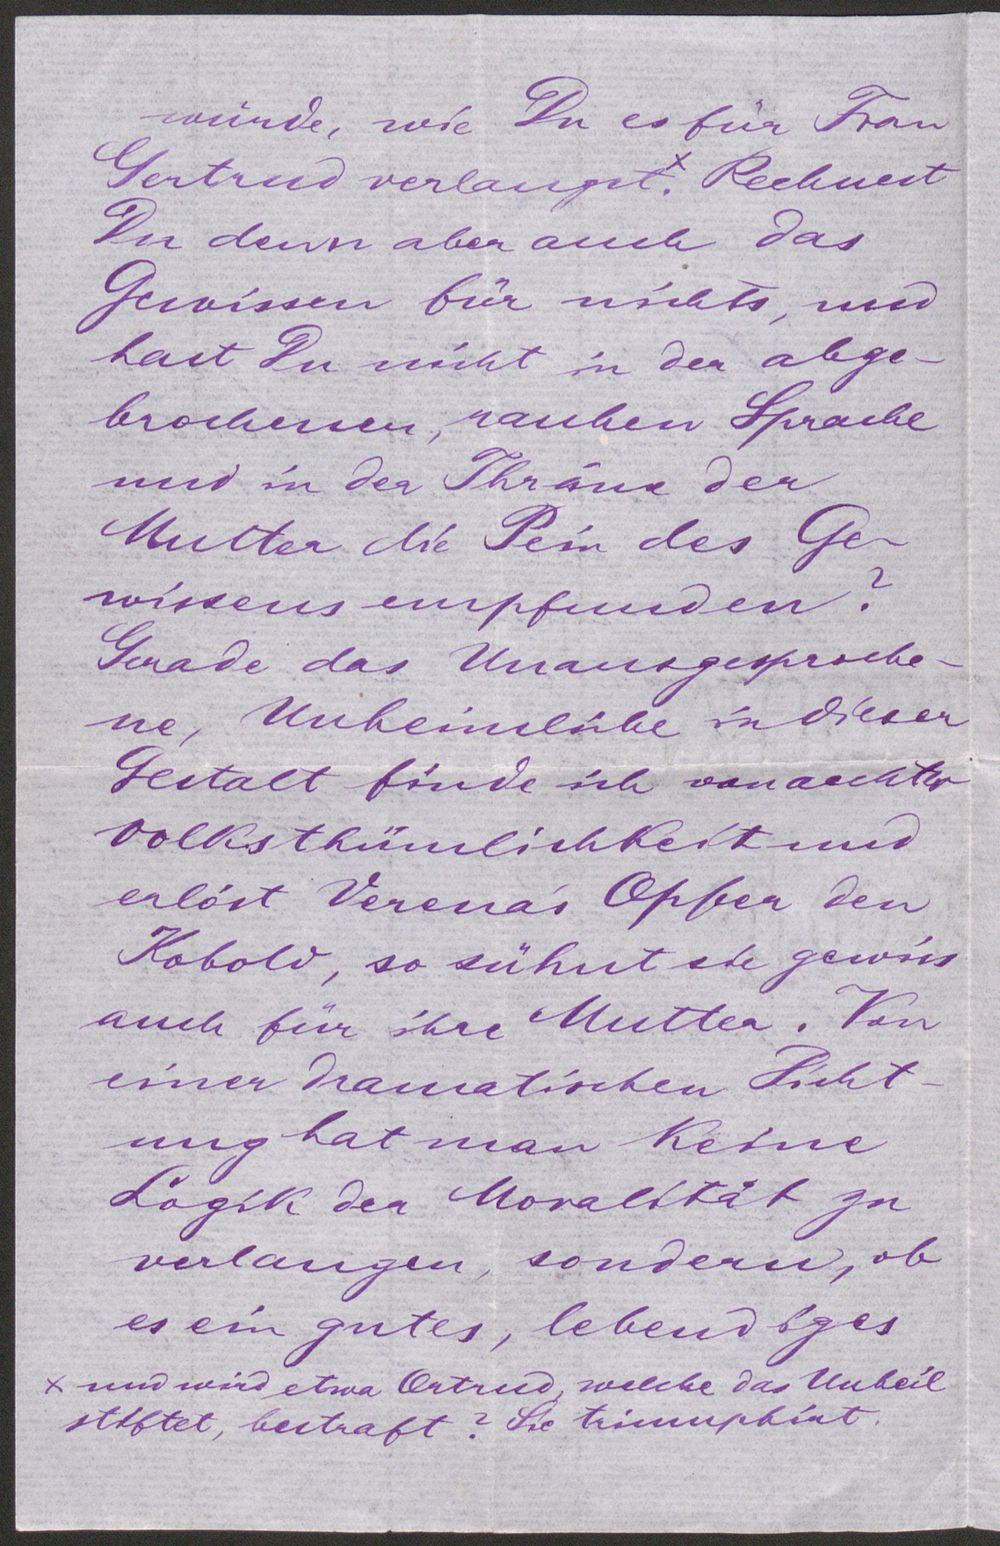 würde, wie Du es für Frau
Gertrud verlangst.x Rechnest
Du denn aber auch das
Gewissen für nichts, und
hast Du nicht in der abge-
brochenen, rauhen Sprache
und in der Thräne der
Mutter die Pein des Ge-
wissens empfunden?
Gerade das Unausgesproche-
ne, Unheimliche in dieser
Gestalt finde ich von aechter
Volksthümlichkeit und
erlöst Verena's Opfer den
Kobold, so sühnt sie gewiss
auch für ihre Mutter. Von
einer dramatischen Dicht-
ung hat man keine
Logik der Moralität zu
verlangen, sondern, ob
es ein gutes, lebendiges
x und wird etwa Ortrud, welche das Unheil
stiftet, bestraft? Sie triumphirt.